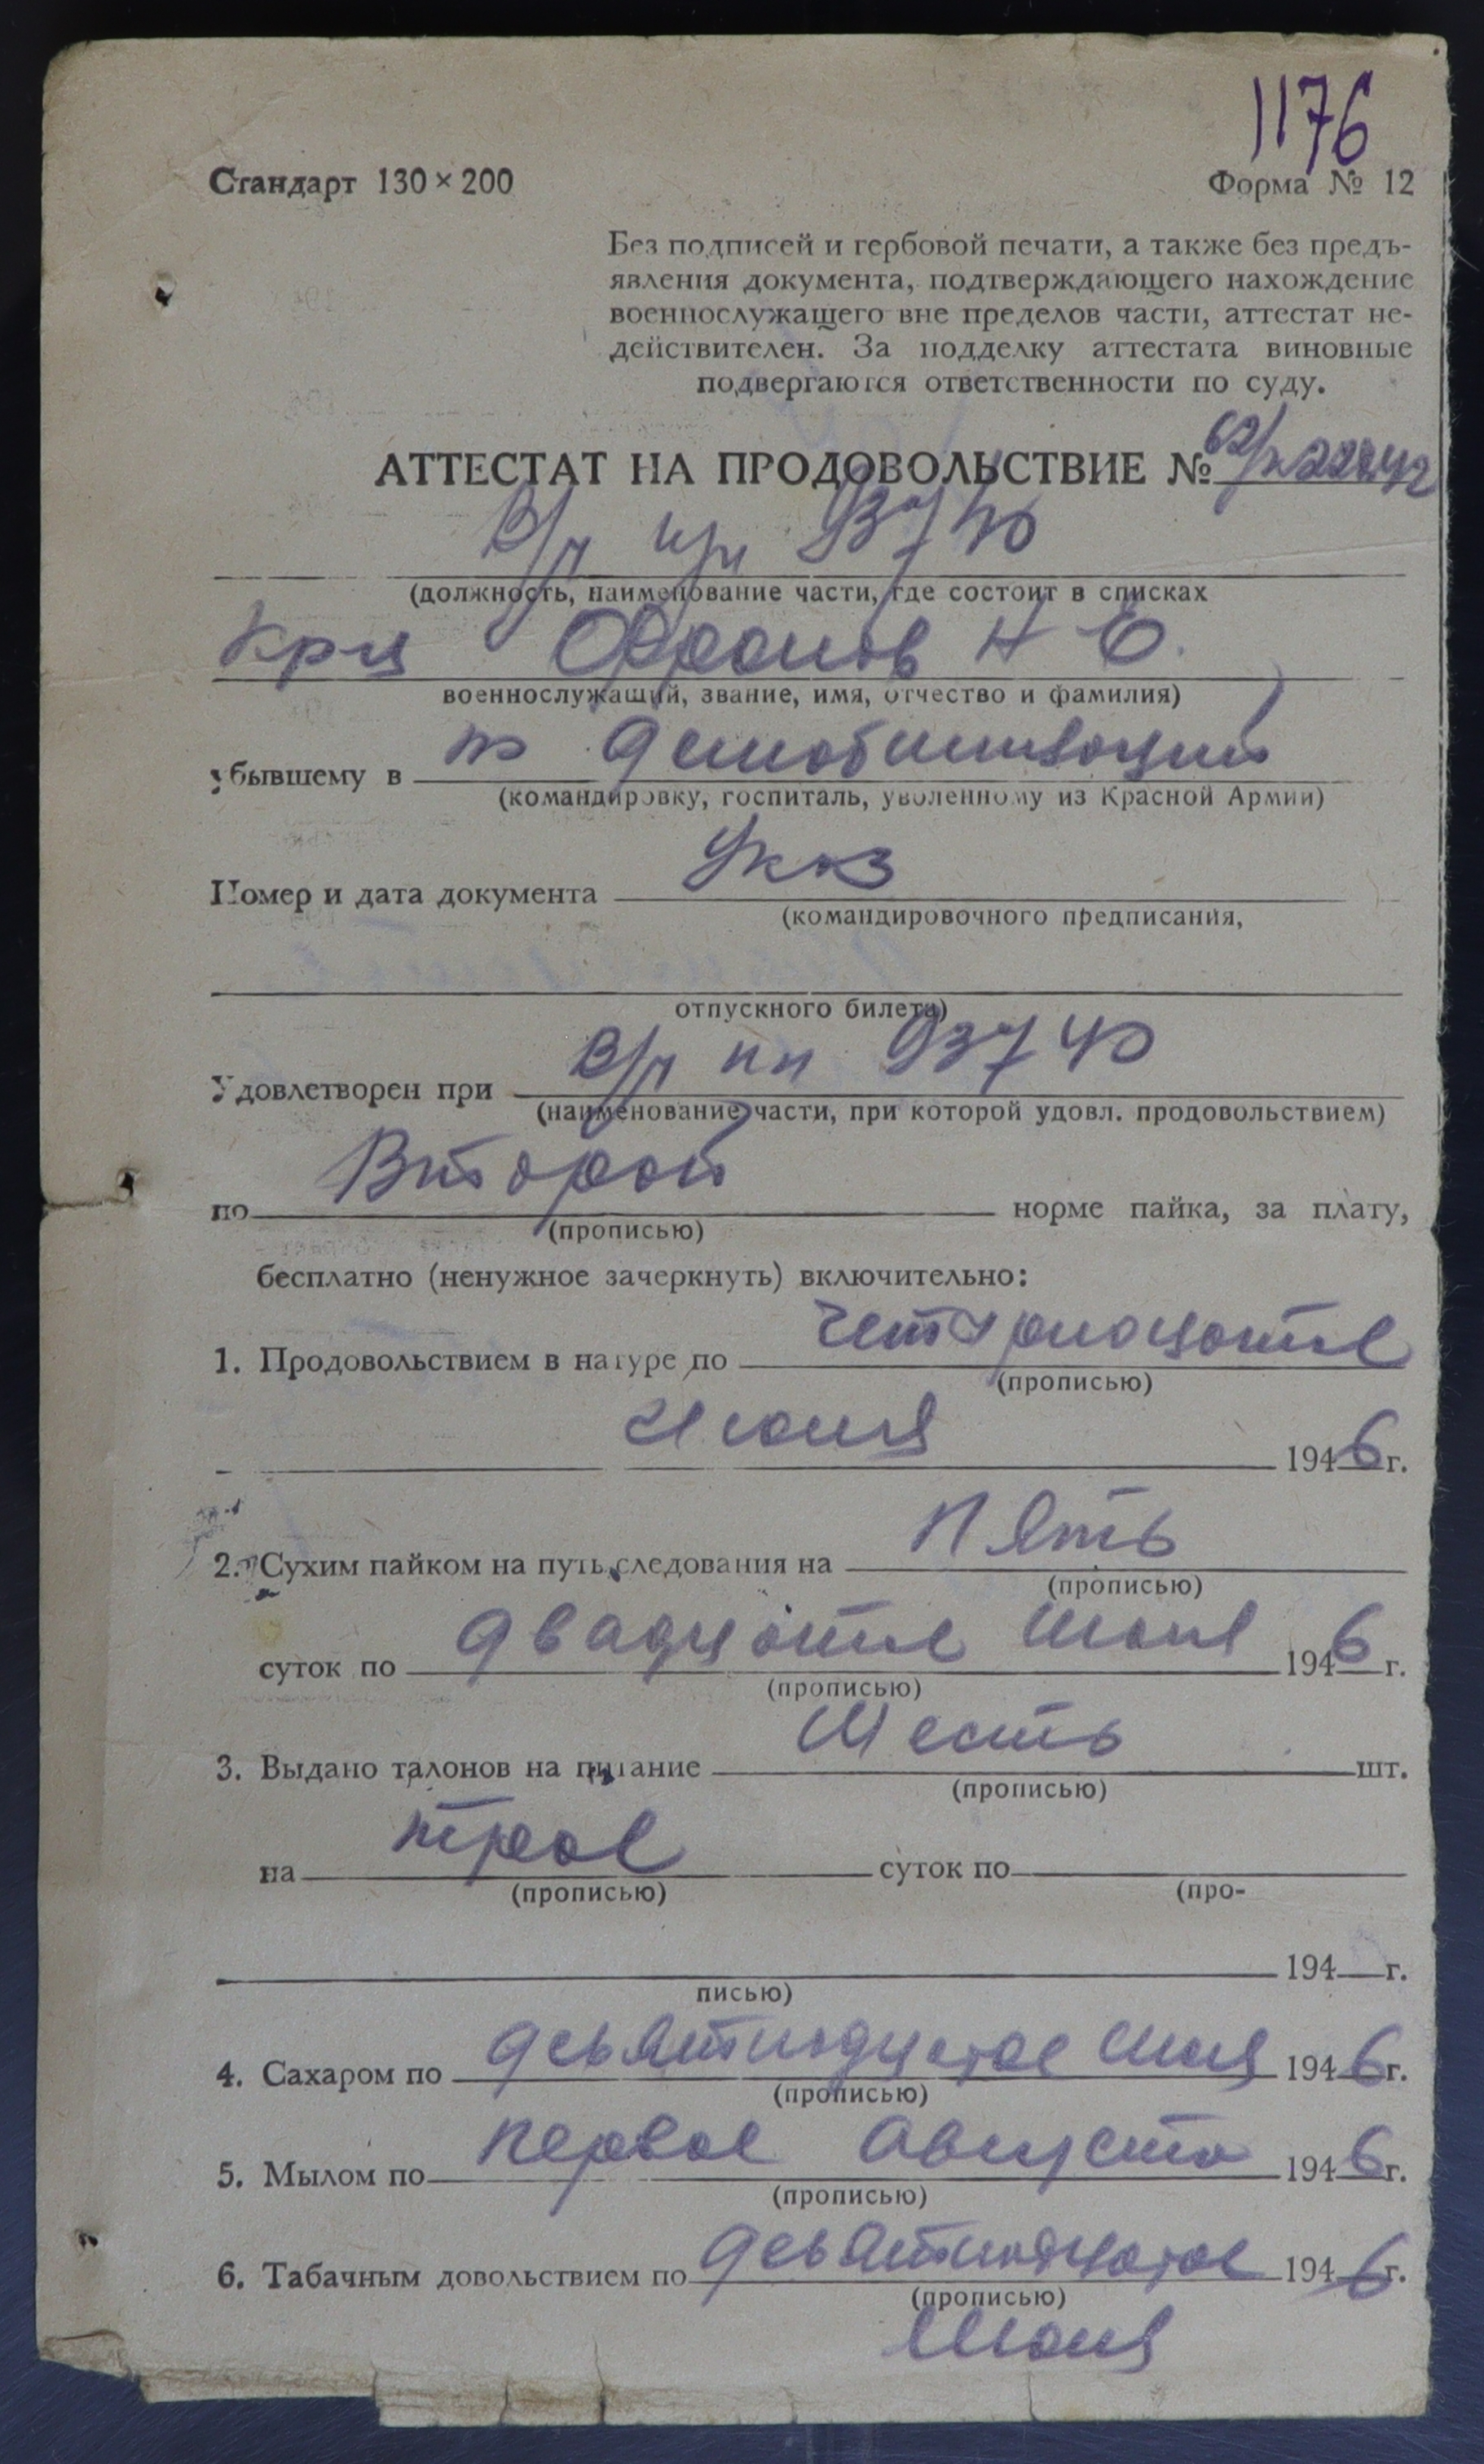 1176
Стандарт 130×200
Форма № 12
Без подписей и гербовой печати, а также без предъ-
явления документа, подтверждающего нахождение
военнослужащего вне пределов части, аттестат не-
действителен. За подделку аттестата виновные
подвергаются ответственности по суду.
АТТЕСТАТ НА ПРОДОВОЛЬСТВИЕ №
В/ч п/п 93740
(должность, наименование части, где состоит в списках
Кр-ц Н Е.
военнослужащий, звание, имя, отчество и фамилия)
убывшему в по демобилизации
(командировку, госпиталь, уволенному из Красной Армии)
Номер и дата документа Указ
(командировочного предписания,
отпускного билета)
Удовлетворен при В/ч пп 93740
(наименование части, при которой удовл. продовольствием)
по Второй норме пайка, за плату,
(прописью)
бесплатно (ненужное зачеркнуть) включительно:
1. Продовольствием в натуре по
(прописью)
Июня 1946 г.
2. Сухим пайком на путь следования на Пять
(прописью)
суток по двадцатое июня 1946 г.
(прописью)
3. Выдано талонов на питание Шесть шт.
(прописью)
на трое суток по
(прописью) (про-
194 г.
писью)
4. Сахаром по девятнадцатое июня 1946 г.
(прописью)
5. Мылом по первое августа 1946 г.
(прописью)
6. Табачным довольствием по девятнадцатое 1946 г.
(прописью)
июня